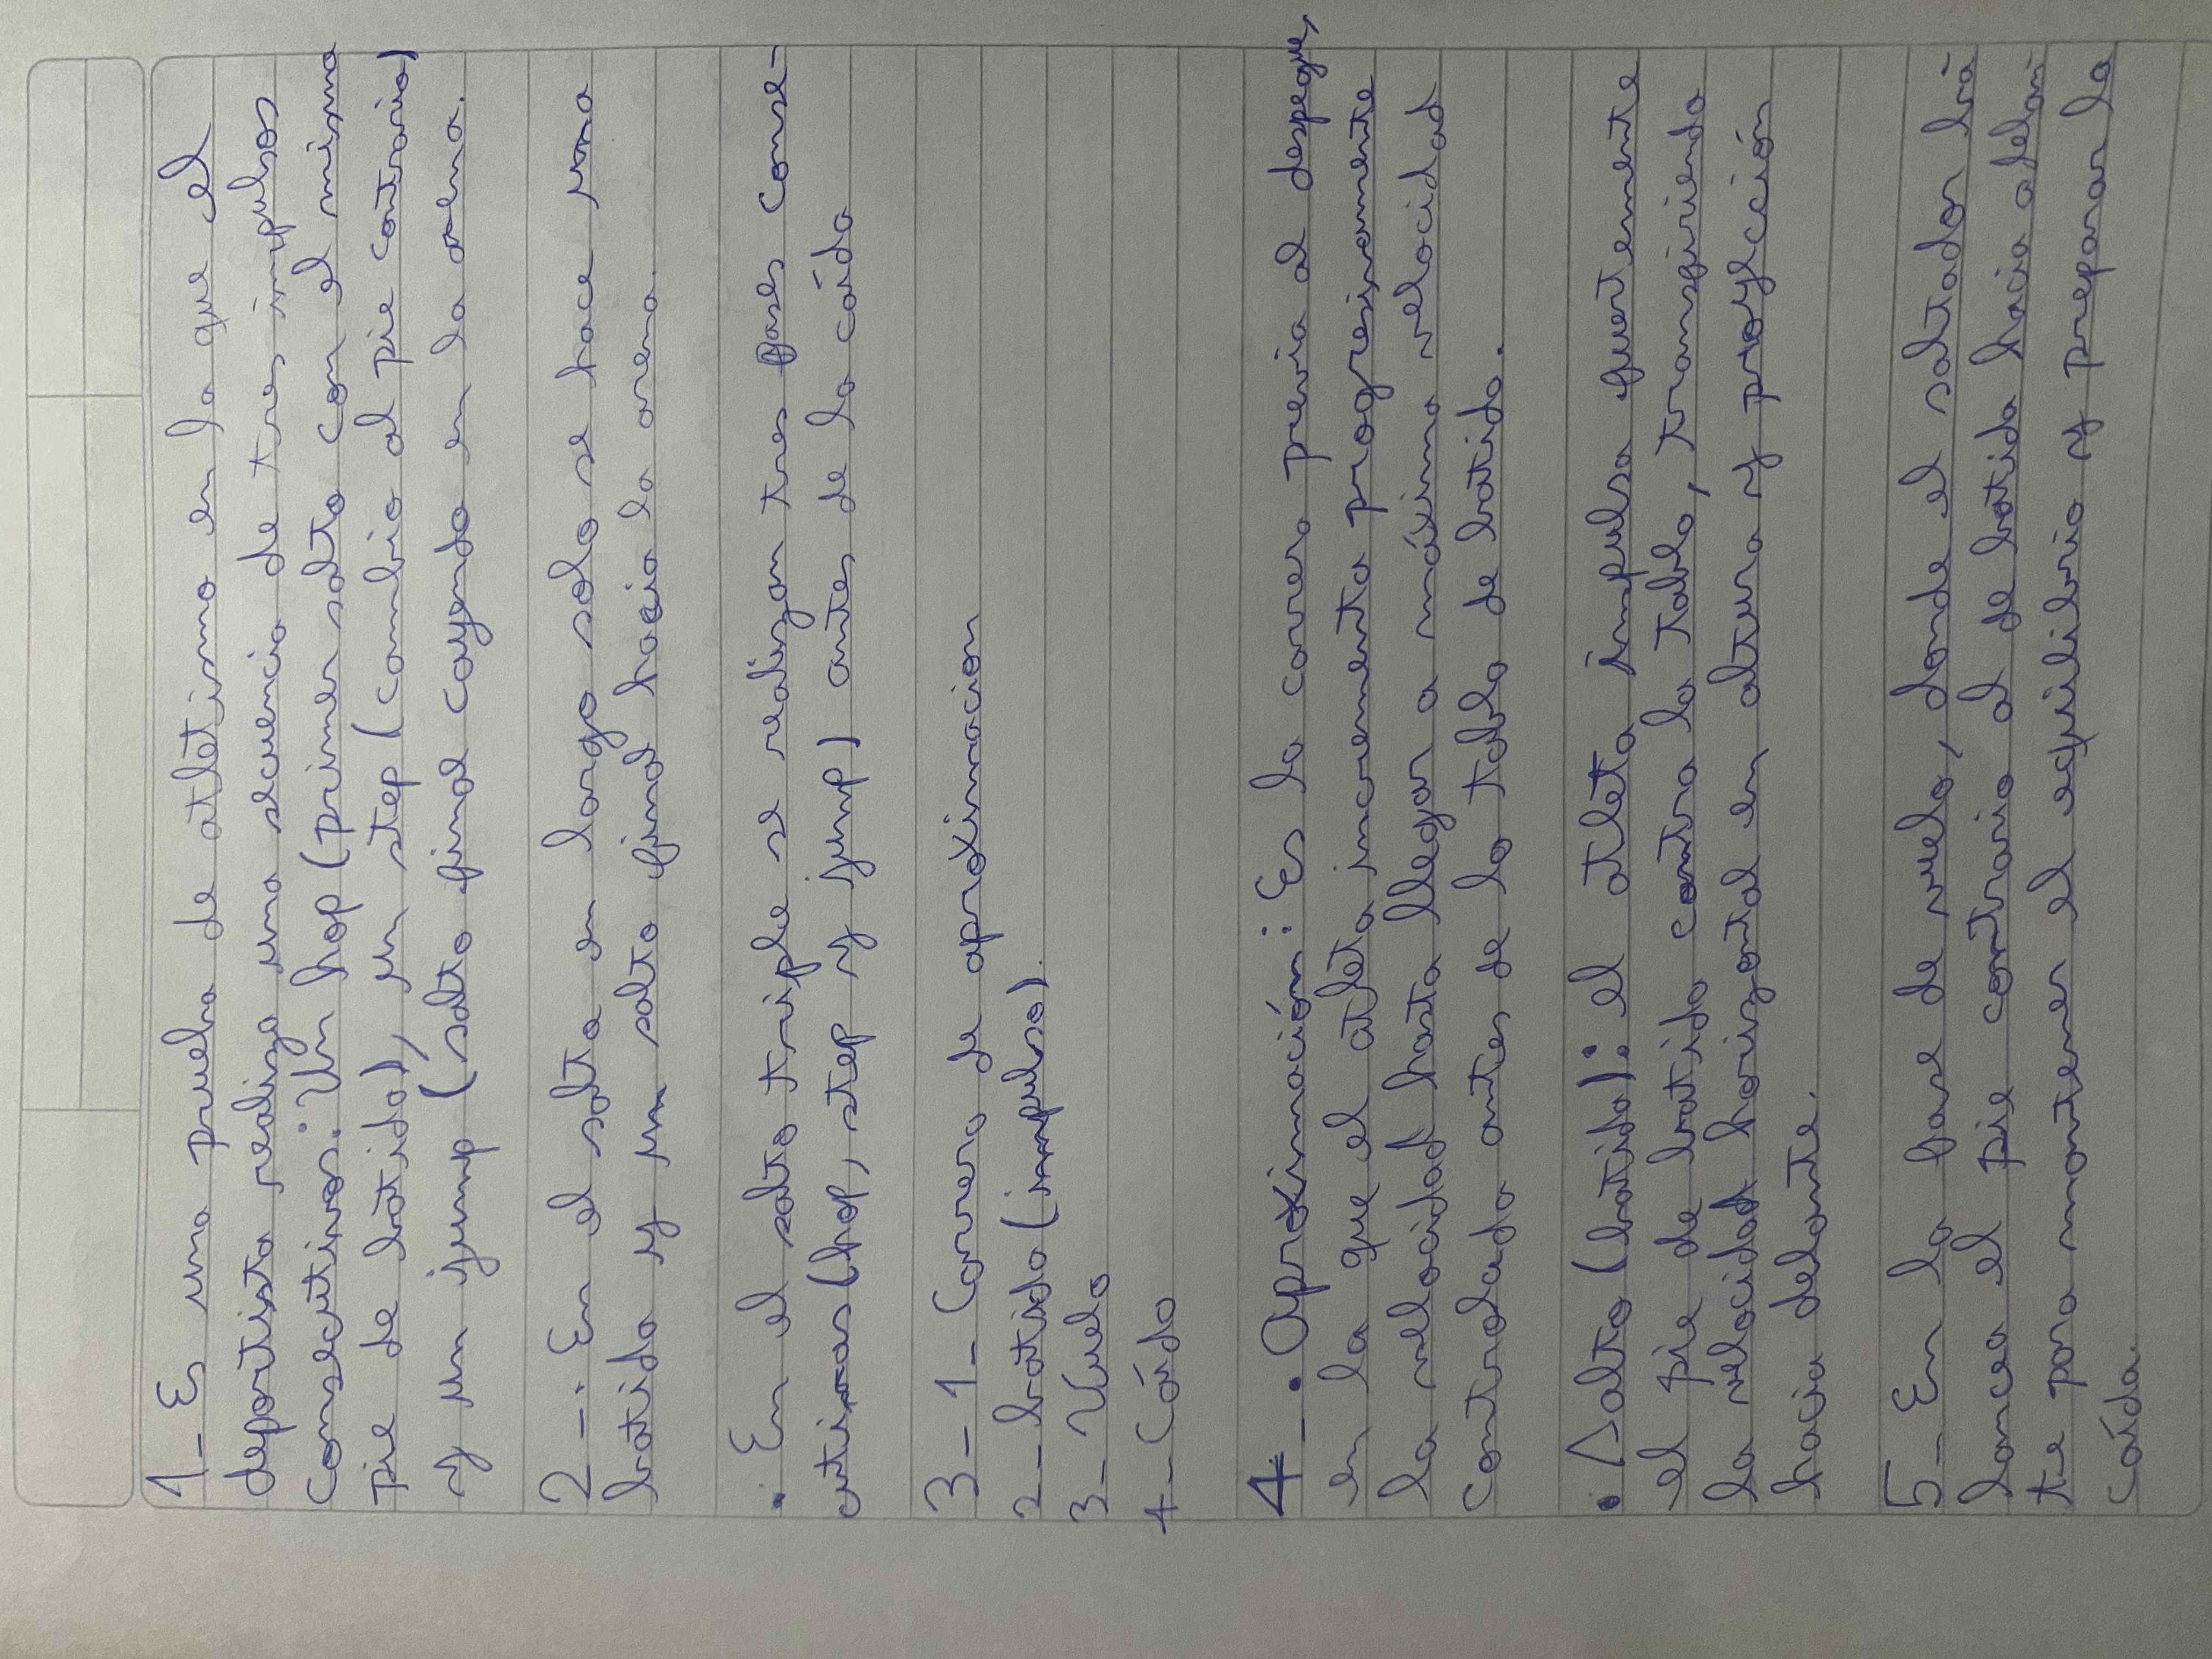 1- Es una prueba de atletismo en la que el
deportista realiza una secuencia de tres impulsos
consecutivos: Un hop (primer salto con el mismo
pie de batida), un step (cambio al pie contrario)
y un jump (salto final cayendo en la arena.
2-· En el salto en largo solo se hace una
batida y un salto final hacia la arena.
· En el salto triple se realizan tres fases conse-
cutivas (hop, step y jump) antes de la caída
3- 1- Carrera de aproximacion
2- batida (impulso)
3- Vuelo
4- Caída
4-· Aproximación: Es la carrera previa al despegue,
en la que el atleta incrementa progresivamente
la velocidad hasta llegar a máxima velocidad
controlada antes de la tabla de batida.
· Salto (batida): el atleta impulsa fuertemente
el pie de batida contra la tabla, transfiriendo
la velocidad horizontal en altura y proyección
hacia delante.
5- En la fase de vuelo, donde el saltador ba
lancea el pie contrario al de batida hacia adelan
te para mantener el equilibrio y preparar la
caída.